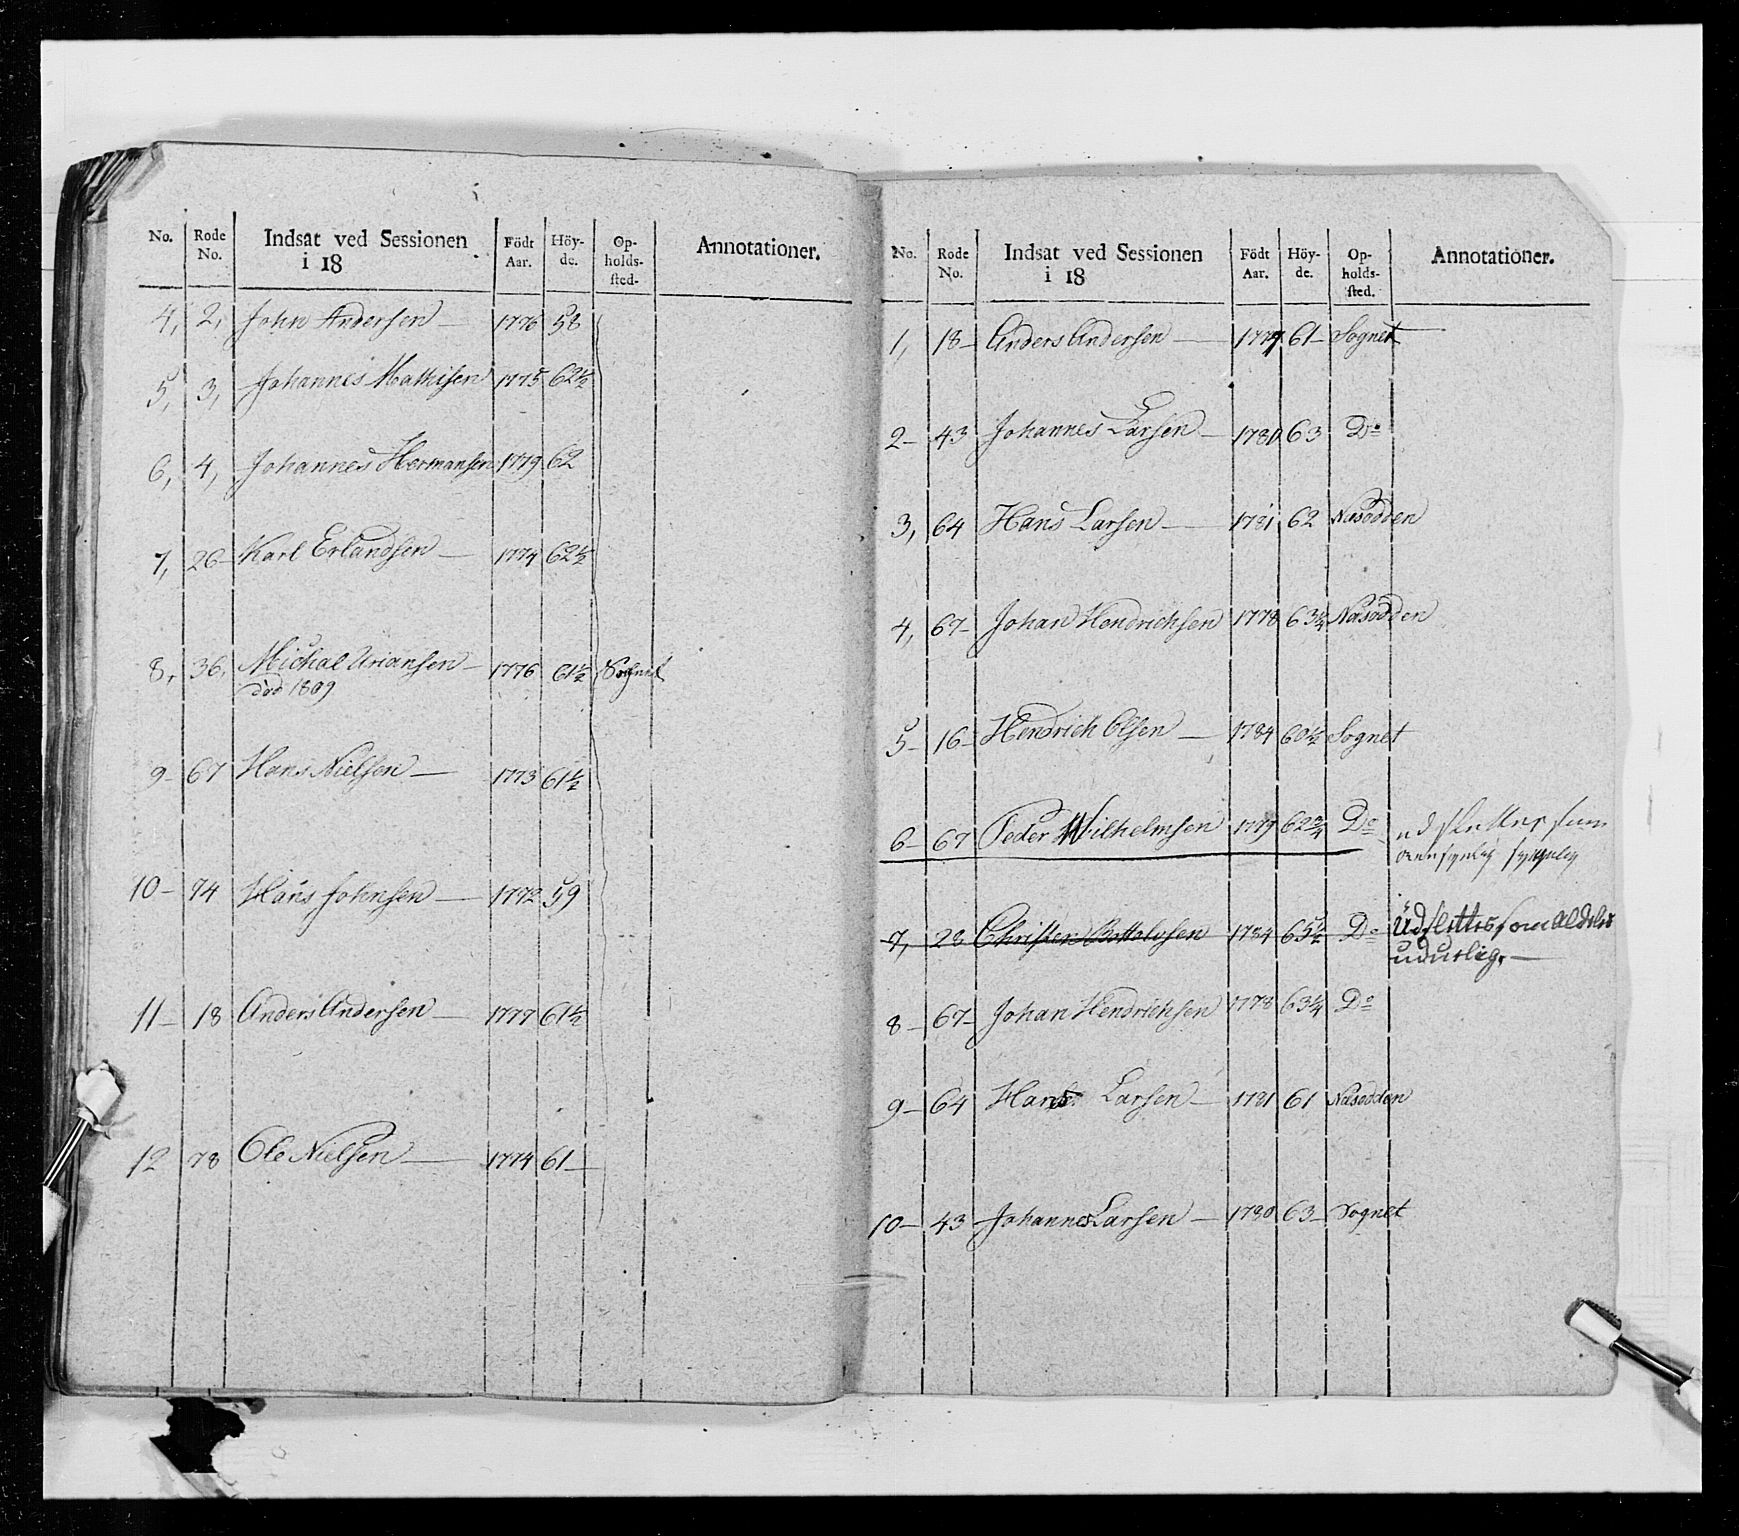 No. Rode No. Indsat ved Sessionen i 18 Födt Aar. Höy- de. Op- holds- sted. Annotationer.
4, 2, John Andersen — 1776 58
5, 3, Johannes Mathisen 1775 62½
6, 4, Johannes Hermansen 1779 62
7, 26 Karl Erlandsen — 1774 62½
8, 36, Michal Uriansen — 1776 61½ Sognet
död 1809
9- 67 Hans Nielsen — 1773 61½
10- 74 Hans Johnsen — 1772 59
11- 18 Anders Andersen — 1777 61½
12 78 Ole Nielsen — 1774 61-
No. Rode No. Indsat ved Sessionen i 18 Födt Aar. Höy- de. Op- holds- sted. Annotationer.
1, 18- Anders Andersen — 1777 61- Sognet
2- 43 Johannes Larsen — 1780 63 Do
3, 64 Hans Larsen — 1781 62 Nasodden
4, 67- Johan Hendrichsen 1778 63¼ Nasodden
5- 16- Hendrich Olsen — 1784 60½ Sognet
6- 67 Peder Wilhelmsen 1779 62¾ Do udslettes som
7, 28 Christen Bottolvsen 1784 65½ Do Üdslettes som Aldeles
udutlig. —
8- 67- Johan Hendrichsen 1778 63¼ Do
9- 64 Hans Larsen — 1781 61 Nasodden
10- 43 Johannes Larsen — 1780 63- Sognet